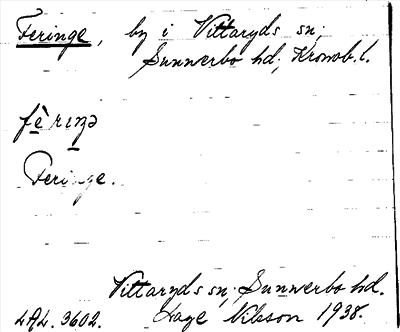 Feringe, by i Vittaryds sn,
Sunnerbo hd, Kronob. l.
fèrıŋə
Feringe.
Vittaryds sn, Sunnerbo hd.
LAL. 3602. Hage Nilsson 1938.